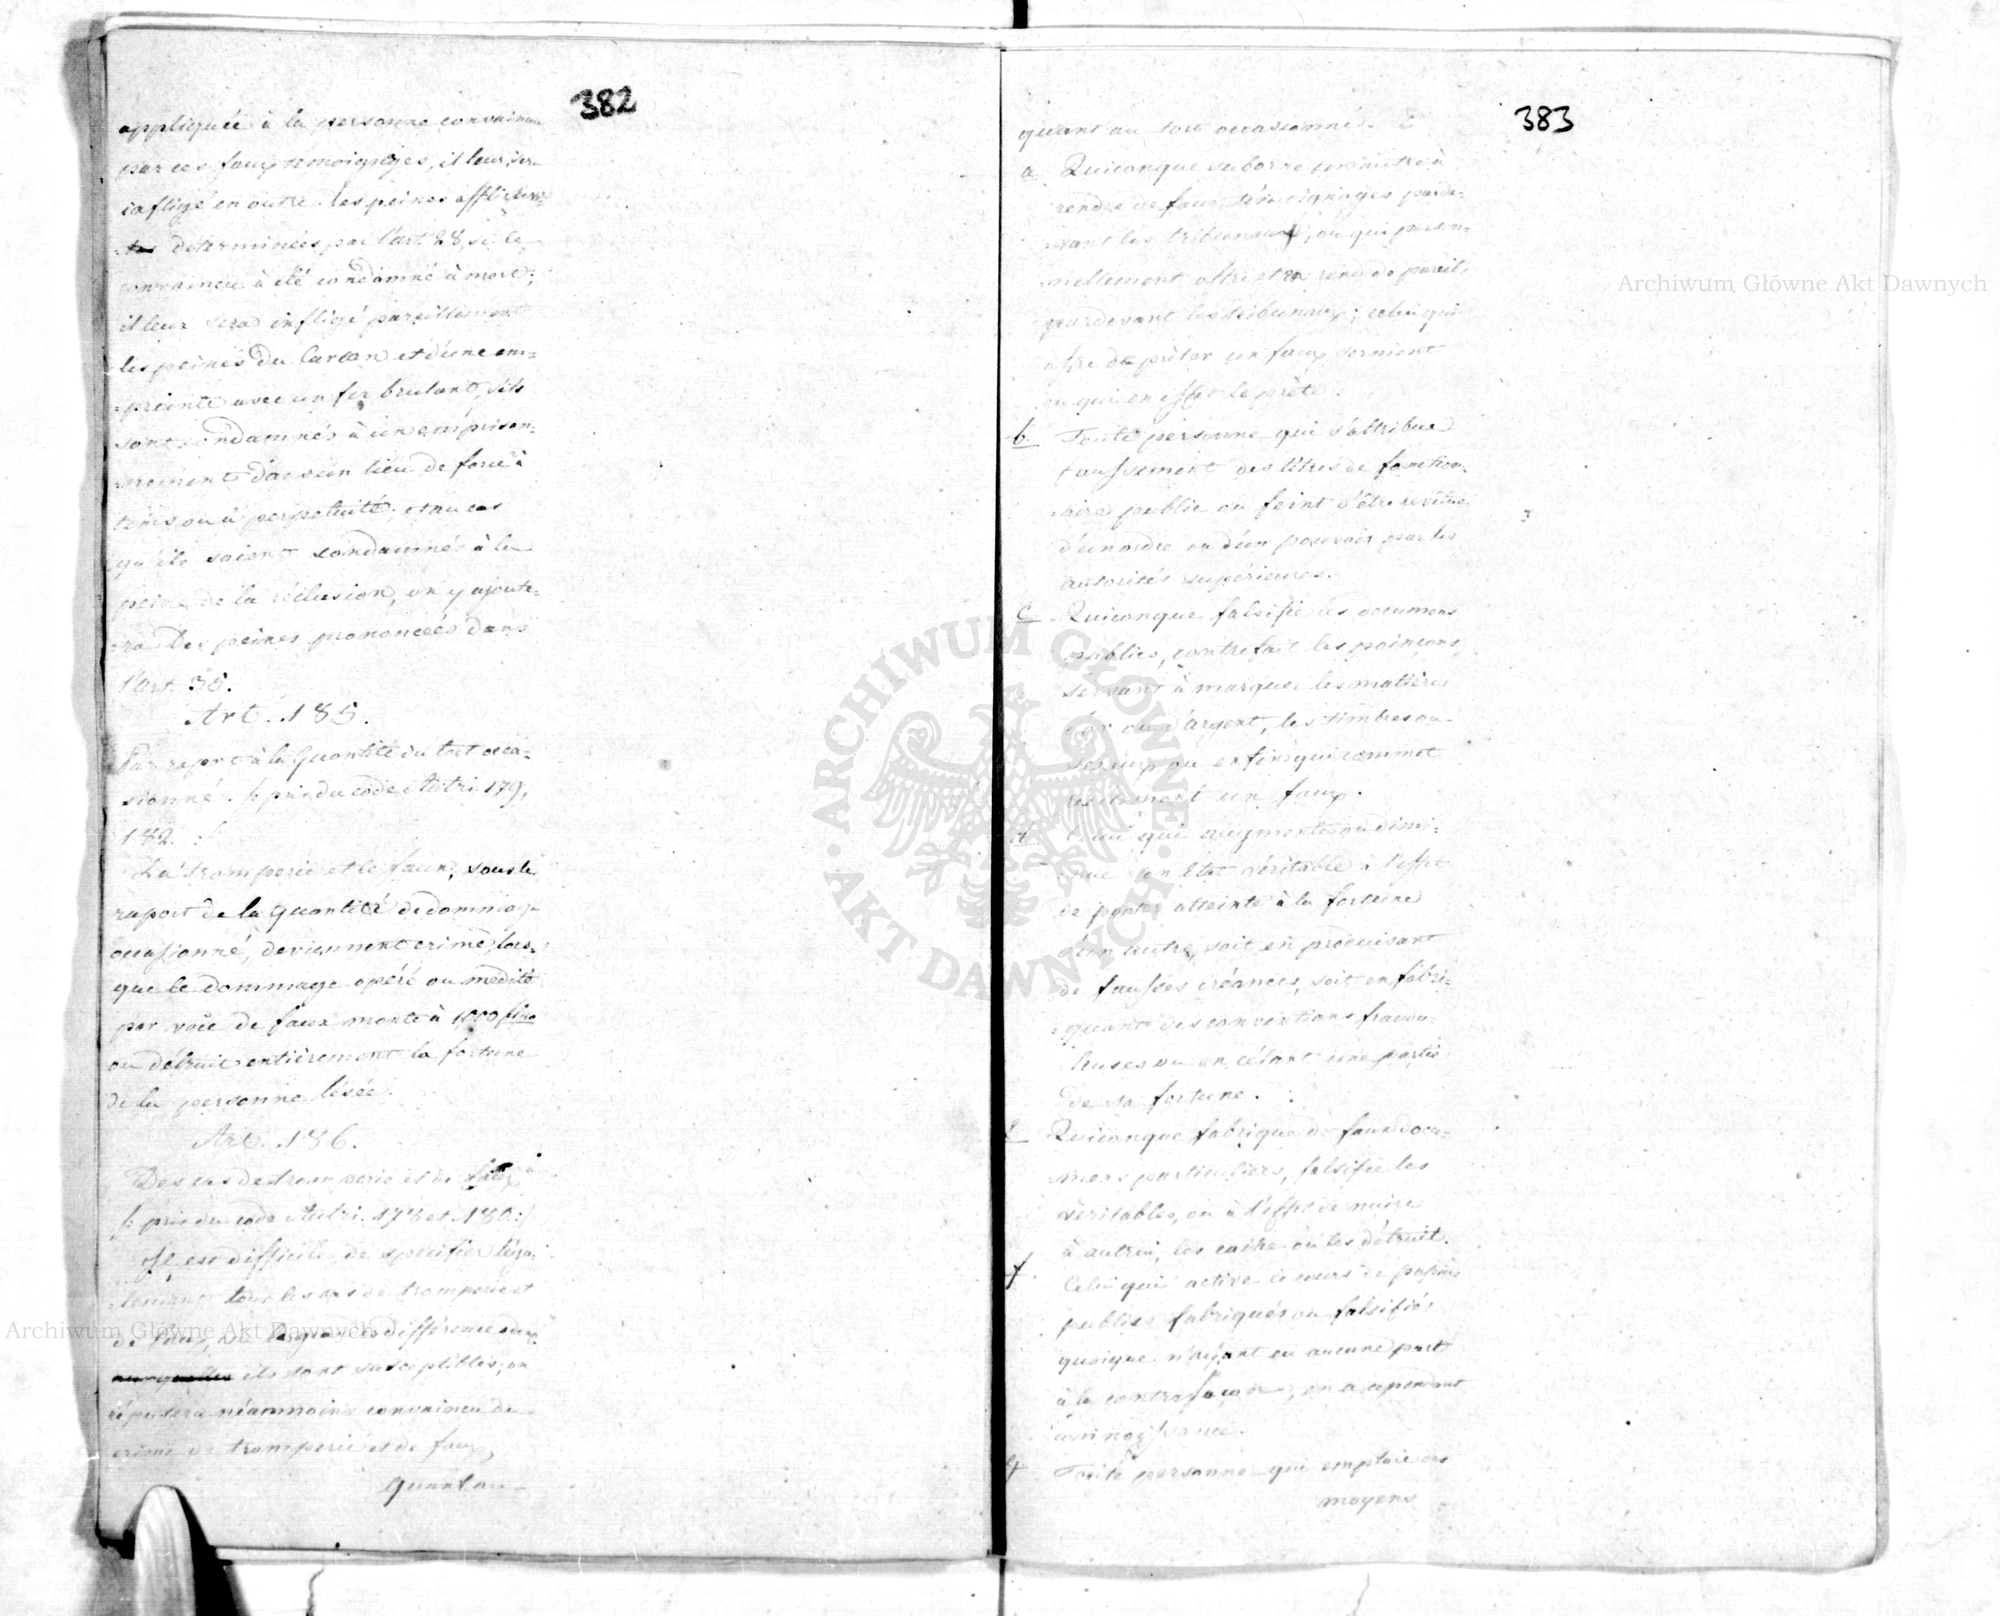 382
appliquée à la personne convaincue
par ces faux temoignages, il leur ser-
infligé en outre les peines afflictives
determinées par l'art. 28, si le
convaincu a été condamné à mort;
il leur sera infligé pareillement
les peines du carcan et d'une em=
=preinte avec un fer brulant, s'ils
sont condamnés à un emprison=
=nement dans un lieu de force à
tems ou à perpetuité; et au cas
qu'ils soient condamnés à la
peine de la réclusion, on y ajoute=
=ra les peines prononcées dans
l'art. 35.
Art. 185.
Par raport à la Quantité du tort occa-
sionné. /: pris du code Autri. 179,
182. :/
La tromperie et le faux, sous le
raport de la quantité de dommage
occasionné, deviennent crime, lors=
que le dommage opéré ou medité
par voie de faux monte à 1000 flns
ou détruit entièrement la fortune
de la personne lésée.
Art. 186.
Des cas de tromperie et de faux
/: pris du code Autri. 178 et 180 :/
Il est difficile de specifier léga-
=lement tous les cas de tromperie et
de faux, vu la grande difference
ils sont susceptibles; on
réputera néanmoins convaincu de
crime de tromperie et de faux,
Quant au
383
quant au tort occasionné.
a Quiconque suborne un autre à
rendre de faux témoignages parde=
=vant les tribunaux, ou qui person=
=nellement offre et en rend de pareils
pardevant les tribunaux; celui qui
offre de prêter un faux serment
ou qui en effet le prête.
b Toute personne qui s'attribue
faussement des titres de fonction=
=aire public ou feint d'être revêtue
d'un ordre ou d'un pouvoir par les
autorités supérieures.
c Quiconque falsifie les documens
publics, contrefait les poinçons
servant à marquer les matières
d'or ou d'argent, les timbres ou
sceaux ou enfin qui commet
un faux.
d Celui qui augmente ou dimi=
=nue son état véritable à l'effet
de porter atteinte à la fortune
d'un autre, soit en produisant
de fausses créances, soit en fabri=
=quant des conventions fraudu=
leuses ou en célant une partie
de sa fortune.
e Quiconque fabrique de faux docu=
mens particuliers, falsifie les
véritables, ou à l'effet de nuire
à autrui, les cache ou les détruit.
f Celui qui active le cours de papiers
publics fabriqués ou falsifiés
quoique n'ayant eu aucune part
à la contrefaçon, en a cependant
connoissance.
g Toute personne qui emploie des
moyens
Archiwum Główne Akt Dawnych
Archiwum Główne Akt Dawnych
ARCHIWUM GŁÓWNE · AKT DAWNYCH ·